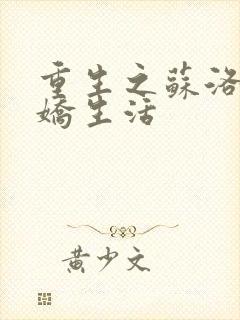 重生之蘇洛
嬌生活
黃少文